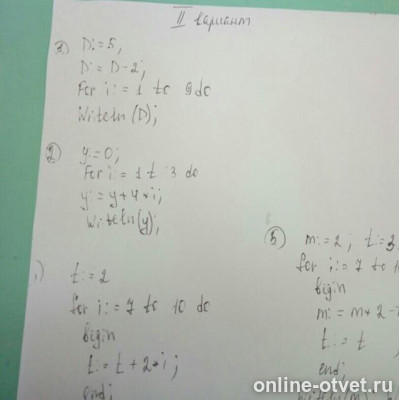 II вариант
3) D:=5;
D:=D-2;
For i:=1 to 9 do
Writeln(D);
2) y:=0;
For i:=1 t 3 do
y:=y+4*i;
Writeln(y);
1)
t:=2
for i:=7 to 10 do
begin
t:=t+2*i;
end;
5) m:=2; t:=3
for i:=7 to 1
begin
m:=m+2-
t:=t
end;
online-otvet.ru